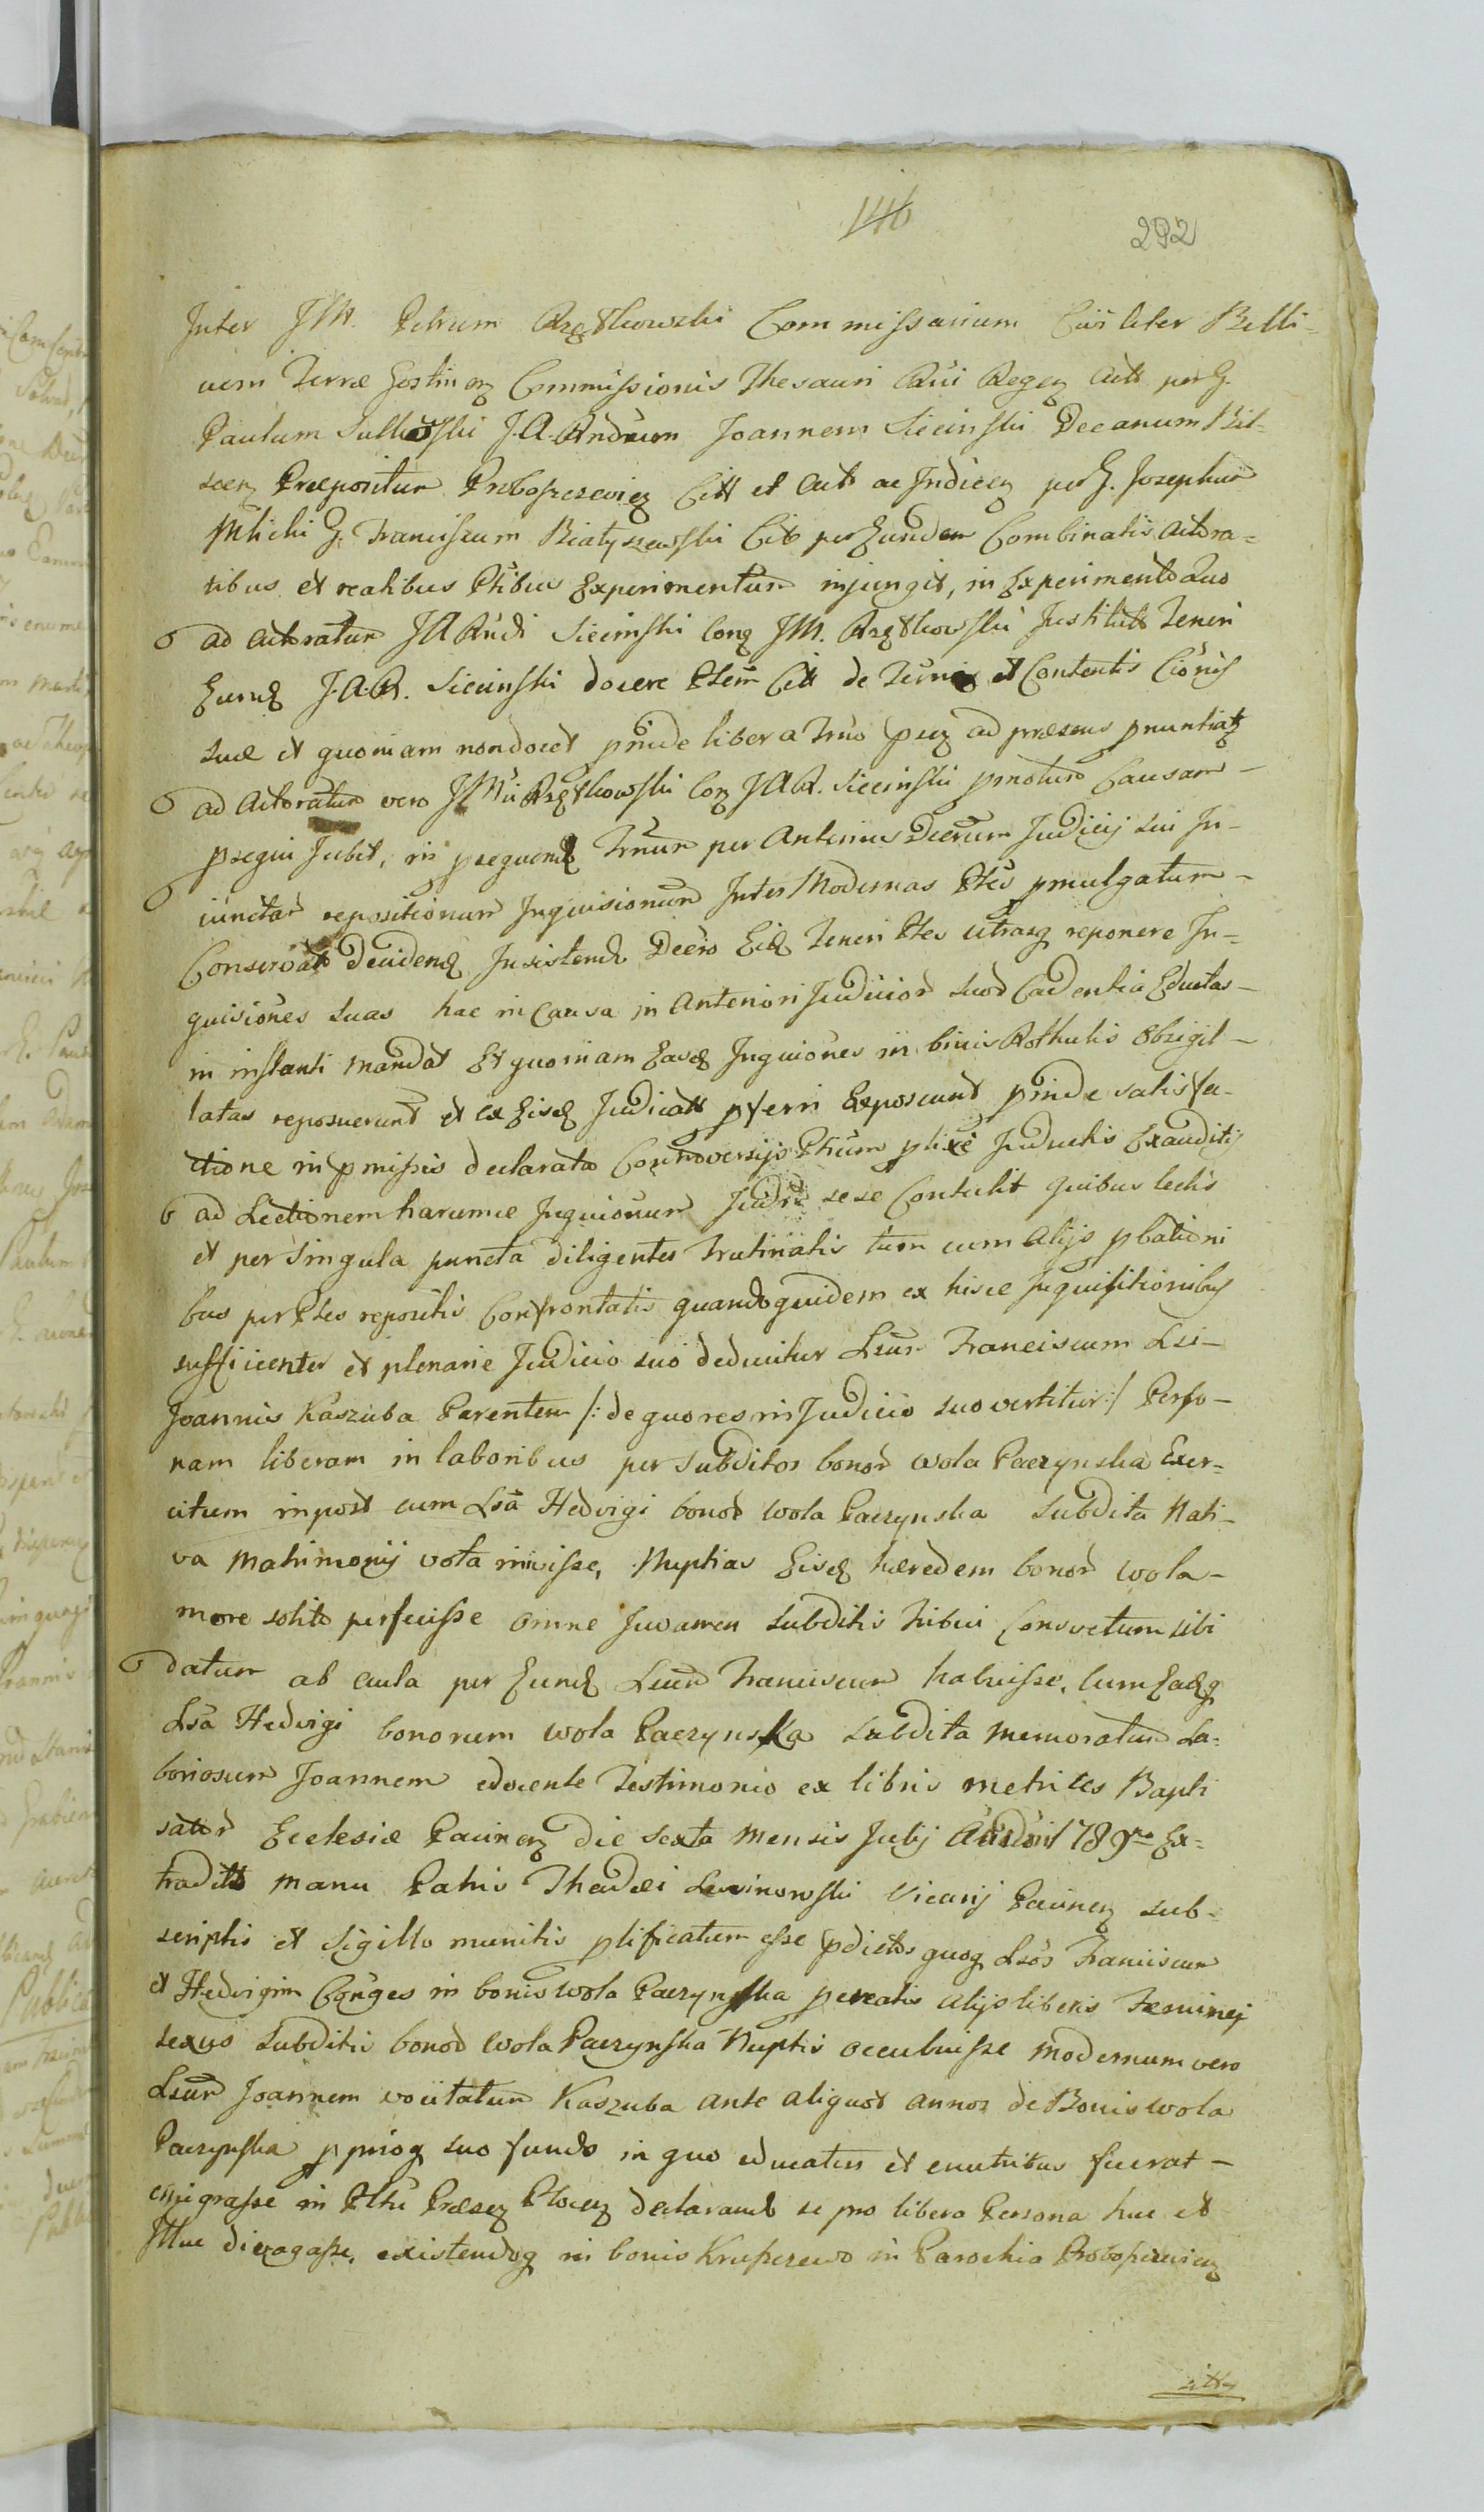 146
292
Inter JM. Petrum Rzętkowski Commissarium Civiliter Belli-
cum Terræ Gostinen Commissionis Thesauri Rni Regen Actt per G.
Paulum Sulkowski J.A.Rndum Joannem Siecinski Decanum Bil-
scen Præpositum Proboszczevicen Citt et Act ac Indicen per G. Josephum
Milicki G. Franciscum Białyszewski Cit per Eundem Combinatis Actora-
tibus et reatibus Ptibus Experimentum injungit, in Experimento Quo
ad Actoratum JARndi Siecinski Conq JM. Rzętkowski Institut Teneri
Eumq J.A.R. Siecinski docere Ptem Citt de Termino et Contentis Cionis
suæ et quoniam non docet pinde liber a Tmo psen ad præsens pnuntiatq
ad Actoratum vero JMci Rzętkowski Con JAR. Siecinski pmotum Causam -
psequi Jubet, in psequend Tmum per Anterius Decrum Judicij sui In-
iunctar repositionum Inquisionum Inter Modernas Ptes pmulgatum -
Conservat Decidend Insistend Decro Eid Teneri Ptes utrasq reponere In-
quisiones suas hac in Causa in Anteriori Judicior suor Cadentia Eductas -
in instanti mandat Et quoniam Easd Inquiones in binis Rothulis Obsigil-
latas reposuerunt et ex Eisd Judicatt pferri Exposcunt pinde satisfa-
ctione in pmissis declarata Controversijs Ptium plixe Inductis Exauditis
ad Lectionem harumce Inquionum Judm sese Contulit quibus lectis
et per singula puncta diligenter Trutinatis tum cum alijs pbationi
bus per Ptes repositis Confrontatis quandoquidem ex hisce Inquisitionibus
sufficienter et plenarie Judicio suo deducitur Lsum Franciscum Lsi-
Joannis Kaszuba Parentem /: de quo res in Judicio suo vertitur :/ Perso-
nam liberam in laboribus per Subditos bonor Wola Paczynska Exer-
citum inpost cum Lsa Hedvigi bonor Wola Paczynska Subdita Nati-
va Matrimonij vota inivisse, Nuptias Eisd hæredem bonor Wola -
more solito perfecisse omne Juvamen Subditis tribui Consvetum sibi
datum ab aula per Eund Lsum Franciscum habuisse, Cum Eadq
Lsa Hedvigi bonorum Wola Paczynska Subdita memoratum La-
boriosum Joannem edocente Testimonio ex libris metrices Bapti
sator Ecclesiæ Pacinen die sexta mensis Julij 1789no Ex-
traditt manu Patris Thadæi Lewinowski Vicarij Pacinen sub-
scriptis et sigillo munitis plificatum esse pdictos quoq Lsos Franciscum
et Hedvigim Conges in bonis Wola Paczynska percatis alijs liberis Fæminej
sexus Subditis bonor Wola Paczynska Nuptis occubuisse modernum vero
Lsum Joannem vocitatum Kaszuba ante aliquot annos de Bonis Wola
Paczynska ppriog suo fundo in quo educatus et enutritus fuerat -
emigrasse in Pltu Præsen Plocen declarand se pro libera Persona huc et
Illuc divagasse, existendoq in bonis Kruszczewo in Parochia Proboszczevicen
sittis